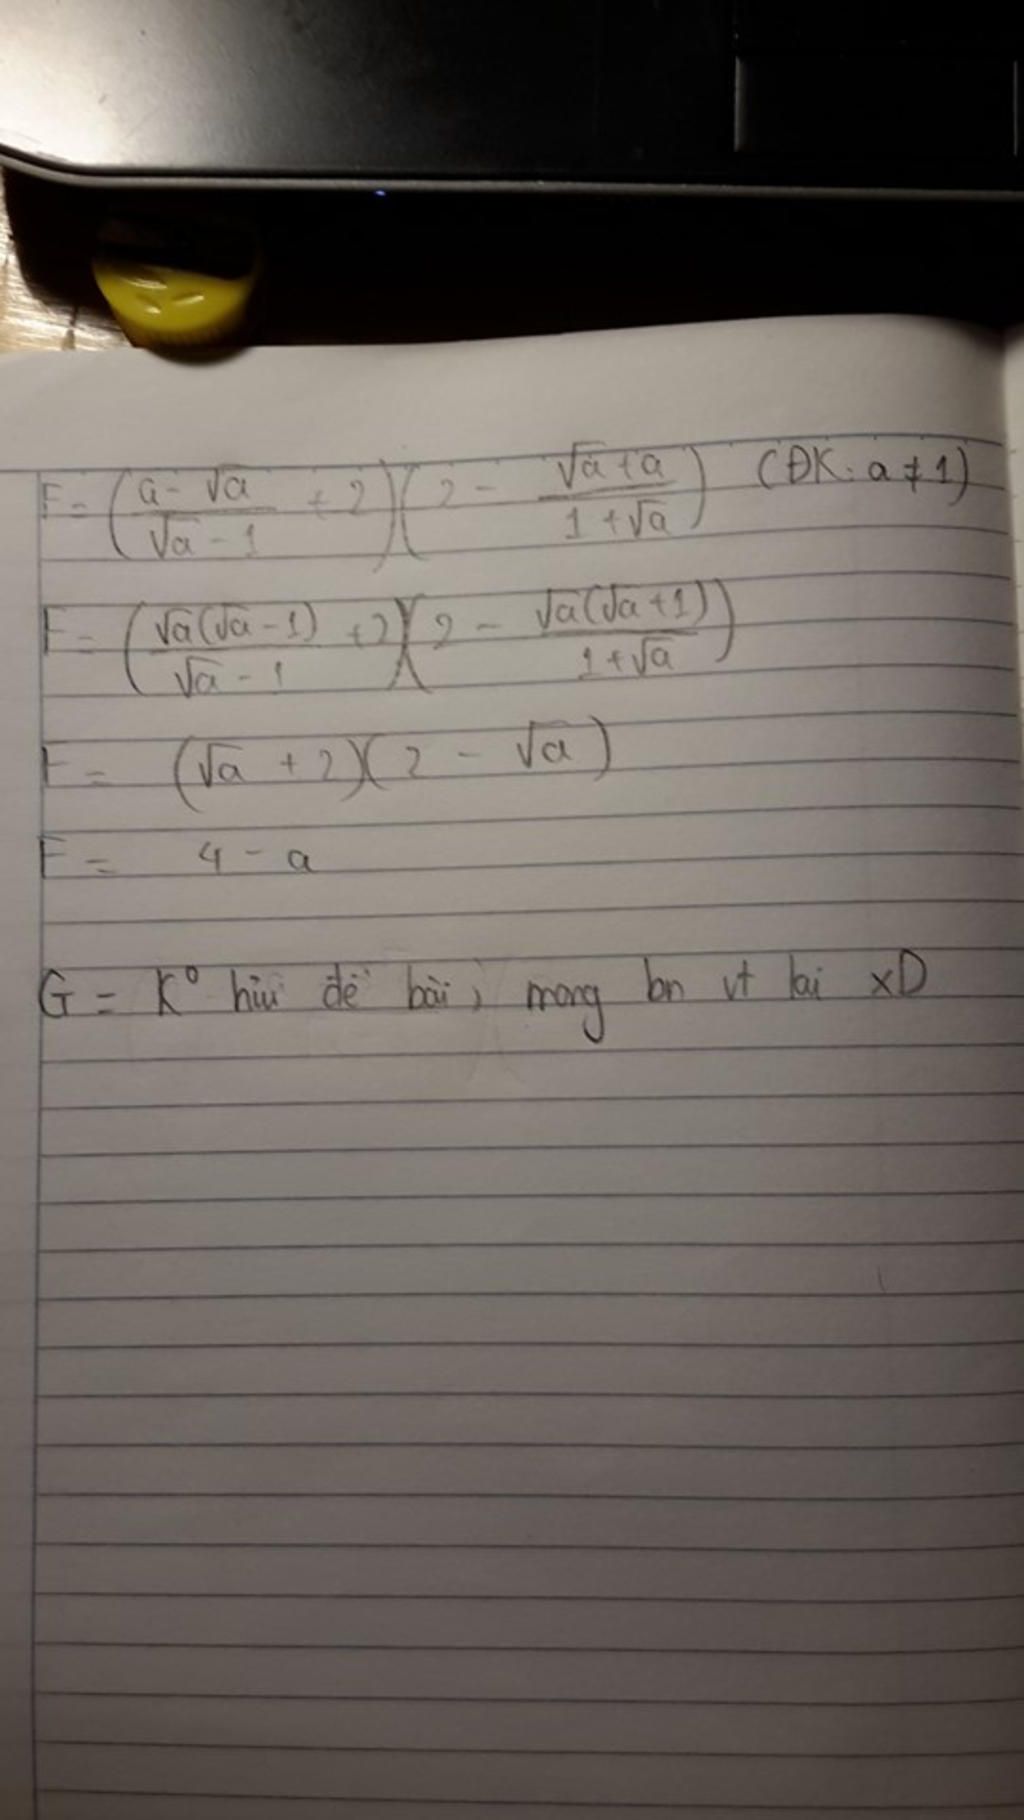 F = (a - √a / √a - 1 + 2)(2 - √a + a / 1 + √a) (ĐK: a ≠ 1)
F = (√a(√a - 1) / √a - 1 + 2)(2 - √a(√a + 1) / 1 + √a)
F = (√a + 2)(2 - √a)
F = 4 - a
G = K° hỉu đề bài, mong bn vt lại xD